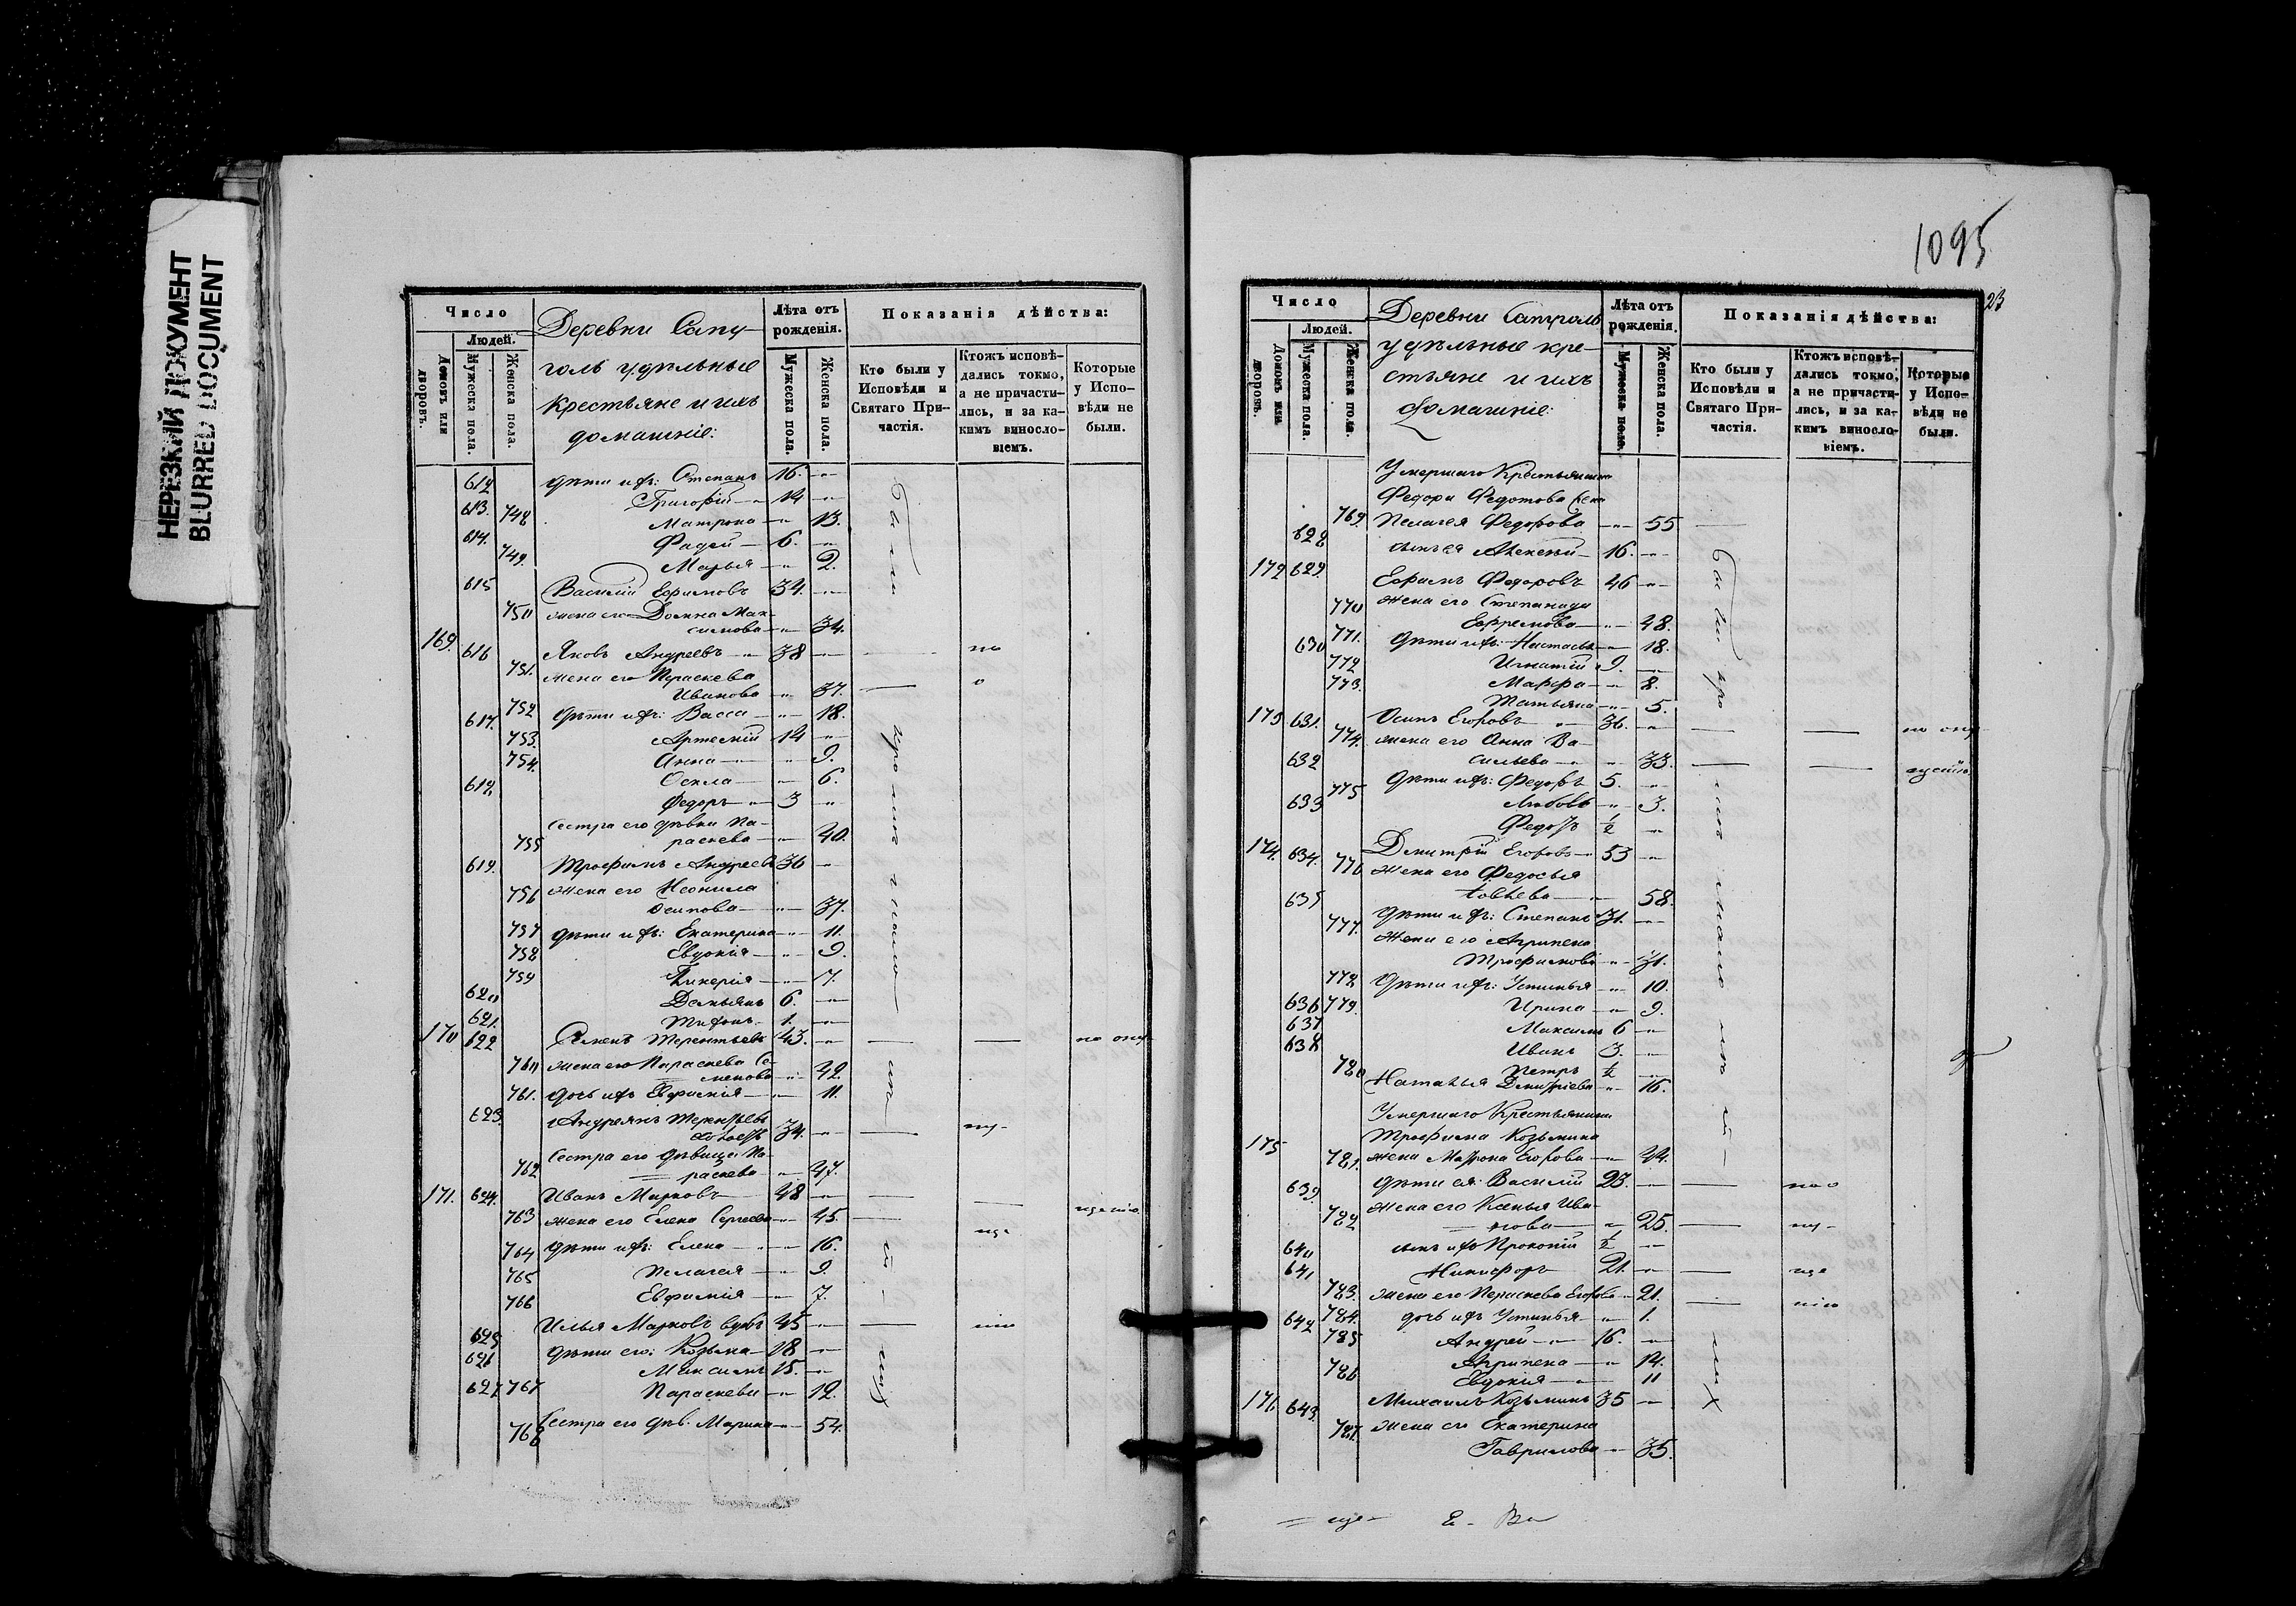 НЕРЕЗКИЙ ДОКУМЕНТ
BLURRED DOCUMENT
Число
Людей.
Домовъ или дворовъ.
Мужеска пола.
Женска пола.
Деревни Сапу-
голь удѣльные
крестьяне и ихъ
домашніе:
Лѣта отъ рожденія.
Мужеска пола.
Женска пола.
Показанія дѣйства:
Кто были у Исповѣди и Святаго Причастія.
Ктожъ исповѣдались токмо, а не причастились, и за какимъ винословіемъ.
Которые у Исповѣди не были.
612 дѣти ихъ: Степанъ 16.
613. Григорій 14
748 Матрона 13.
614. Фадей 6.
749. Марья 2.
615 Василій Ефимовъ 34.
750 жена его Домна Мак-
симова 34.
169. 616 Яковъ Андреевъ 38
751. жена его Параскева
Иванова 37.
752 дѣти ихъ: Васса 18.
617. Артемій 14
753. Анна 9.
754. Фекла 6.
618 Федоръ 3
Сестра его дѣвка Па-
755 раскева 40.
619. Трофимъ Андреевъ 36
756 жена его Неонила
Осипова 37.
757 дѣти ихъ: Екатерина 11.
758 Евдокія 9.
759 Гликерія 7.
620 Демьянъ 6.
621. Тифонъ 1.
170 622 Семенъ Терентьевъ 43.
760 жена его Параскева Се-
менова 42.
761. дочь ихъ Евфимія 11.
623. Андреянъ Терентьевъ
34.
Сестра его дѣвица Па-
762 раскева 47.
171. 624. Иванъ Марковъ 48
763 жена его Елена Сергеева 45.
764 дѣти ихъ: Елена 16.
765 Пелагея 9.
766 Евфимія 7.
625 Илья Марковъ вдовъ 45
626 дѣти его: Козьма 18
627 Максимъ 15.
767 Параскева 12.
768 Сестра его дѣв. Марина 54.
1095
23
Число
Людей.
Домовъ или дворовъ.
Мужеска пола.
Женска пола.
Деревни Сапуголь
удѣльные кре-
стьяне и ихъ
домашніе:
Лѣта отъ рожденія.
Мужеска пола.
Женска пола.
Показанія дѣйства:
Кто были у Исповѣди и Святаго Причастія.
Ктожъ исповѣдались токмо, а не причастились, и за какимъ винословіемъ.
Которые у Исповѣди не были.
Умершаго Крестьянина
Федора Федотова жена
769. Пелагея Федорова 55
628 сынъ ея Алексей 16.
172 629. Ефимъ Федоровъ 46
770 жена его Степанида
Ефремова 48.
630 771. дѣти ихъ: Настасья 18.
772 Игнатій 9.
773. Марфа 8.
Татьяна 5.
173 631. Осипъ Егоровъ 36.
774. жена его Анна Ва-
632 сильева 33.
дѣти ихъ: Федоръ 5.
775 Любовь 3.
633 Федотъ ½
174. 634. Дмитрій Егоровъ 53
776 жена его Федосья
58.
635 дѣти ихъ: Степанъ 31.
777. жена его Агрипена
Трофимова 31.
778 дѣти ихъ: Устинья 10.
636 779. Ирина 9.
637 Максимъ 6
638 Иванъ 3.
Петръ ½
780 Наталья Дмитріева 16.
Умершаго Крестьянина
175 Трофима Козьмина
781. жена Матрона Егорова 44.
639. дѣти ея: Василій 23.
782 жена его Ксенья Ива-
нова 25.
640 сынъ ихъ Прокопій ½
641 Никифоръ 21.
783. жена его Параскева Егорова 21.
642 784. дочь ихъ Устинья 1.
785 Андрей 16.
Агрипена 14.
786 Евдокія 11
176 643. Михаилъ Козьминъ 35
787. жена его Екатерина
Гаврилова 35.